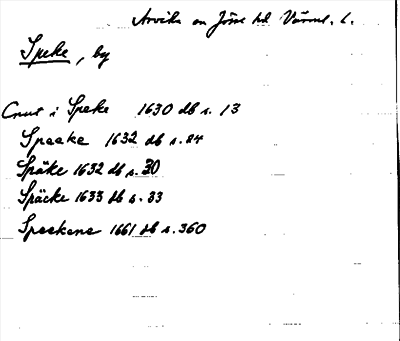 Arvika sn Jösse hd Värml. l.
Speke, by
Cnut i Speke 1630 db s. 13
Speeke 1632 db s. 84
Späke 1632 db s. 30
Späcke 1633 db s. 33
Speekene 1661 db s. 360